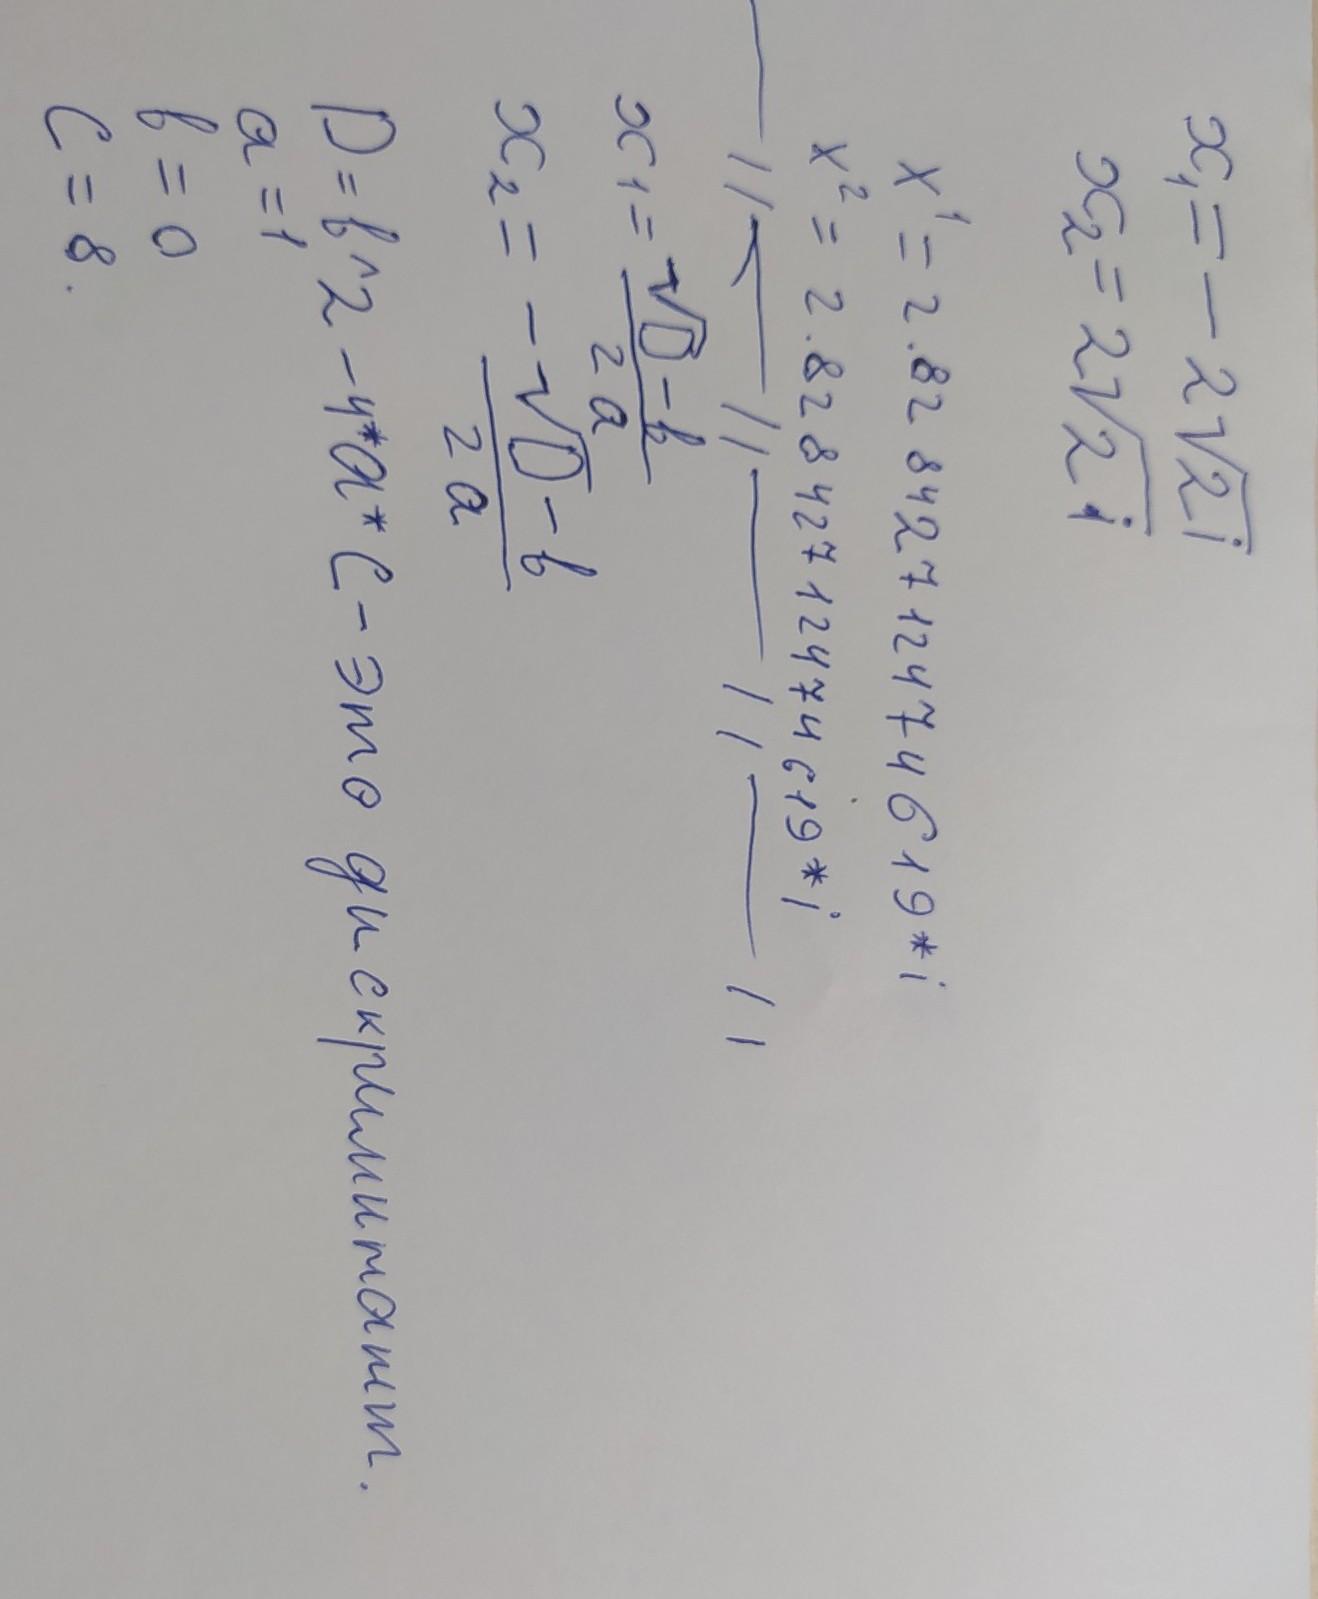 x₁ = -2√2i
x₂ = 2√2i
x¹ = 2.8284271247474619*i
x² = 2.8284271247474619*i
— // — // — // — //
x₁ = √D-b / 2a
x₂ = -√D-b / 2a
D = b^2 - 4*a*c - это дискримитант.
a = 1
b = 0
c = 8.